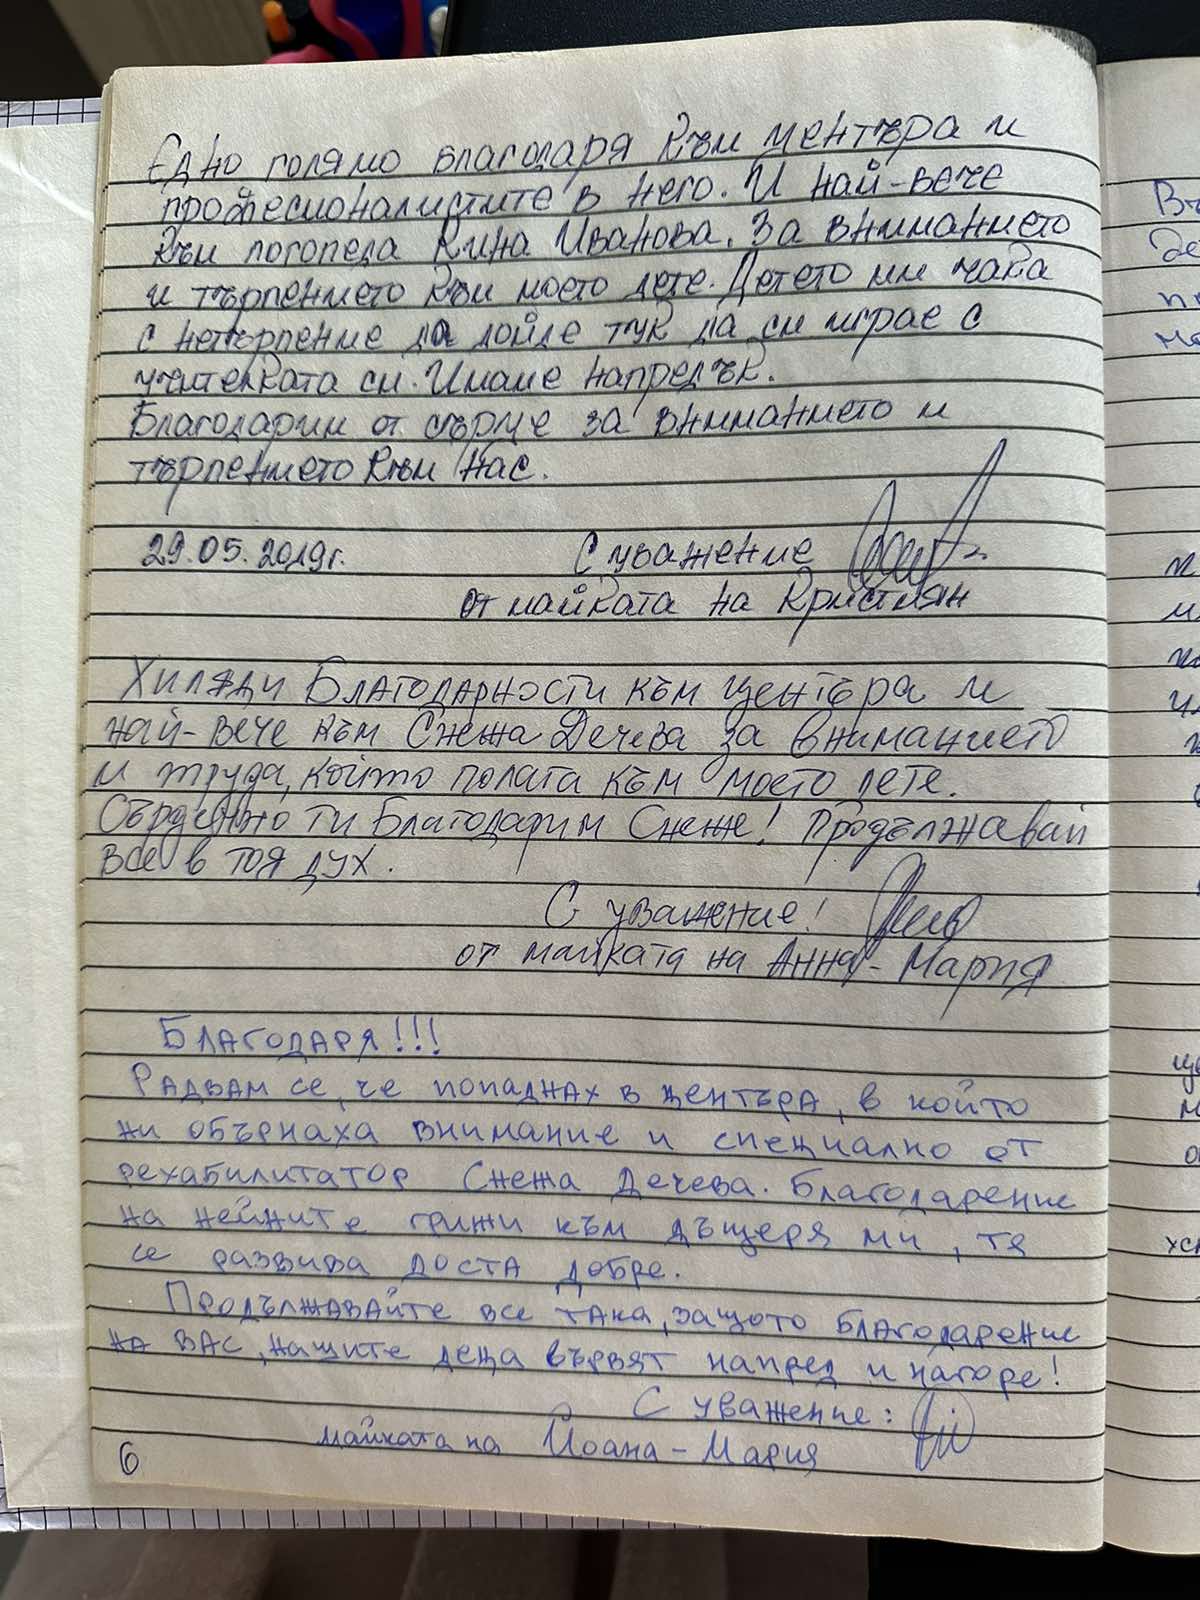 Едно голямо благодаря към центъра и
професионалистите в него. И най-вече
към логопеда Кина Иванова. За вниманието
и търпението към моето дете. Детето ми чака
с нетърпение да дойде тук да си играе с
учителката си. Имаме напредък.
Благодарим от сърце за вниманието и
търпението към нас.
29.05.2019г.
С уважение
от майката на Кристиян
Хиляди Благодарности към центъра и
най-вече към Снежа Дечева за вниманието
и труда, който полага към моето дете.
Сърдечно ти Благодарим Снеже! Продължавай
все в тоя дух.
С уважение!
от майката на Анна-Мария
Благодаря!!!
Радвам се, че попаднах в центъра, в който
ни обърнаха внимание и специално от
рехабилитатор Снежа Дечева. Благодарение
на нейните грижи към дъщеря ми, тя
се развива доста добре.
Продължавайте все така, защото благодарение
на вас, нашите деца вървят напред и нагоре!
С уважение:
майката на Йоана-Мария
6